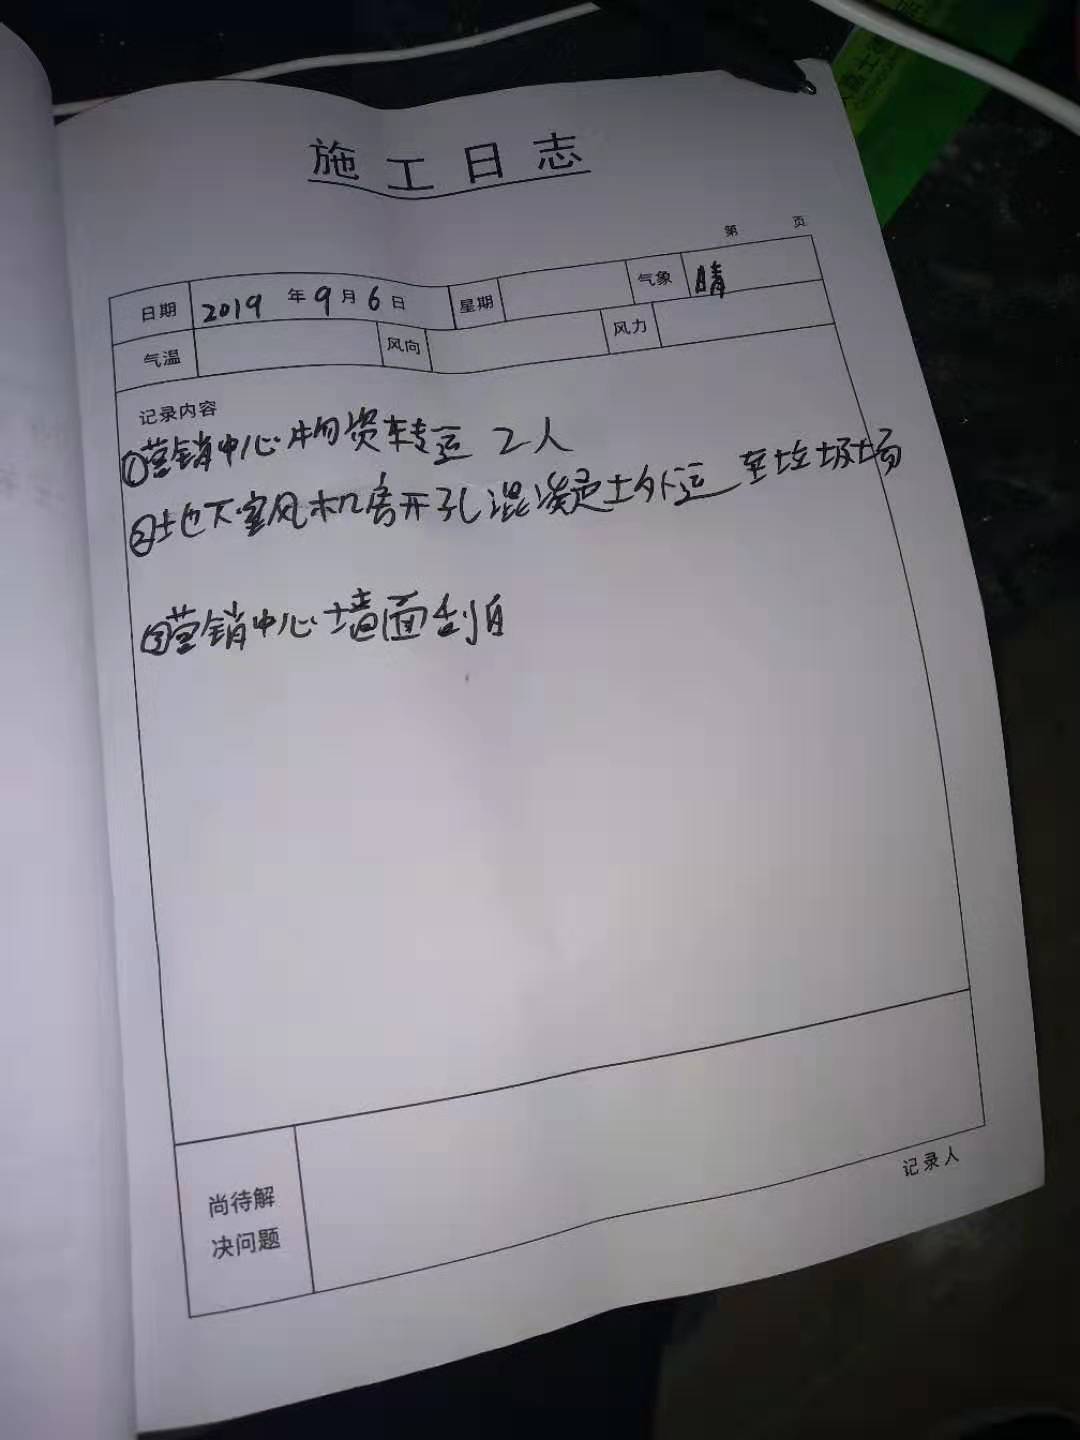 施工日志
第 页
日期 2019 年 9 月 6 日 星期 气象 晴
气温 风向 风力
记录内容
①营销中心物资转运 2人
②地下室风机房开孔混凝土外运至垃圾场
③营销中心墙面刮白
尚待解
决问题
记录人